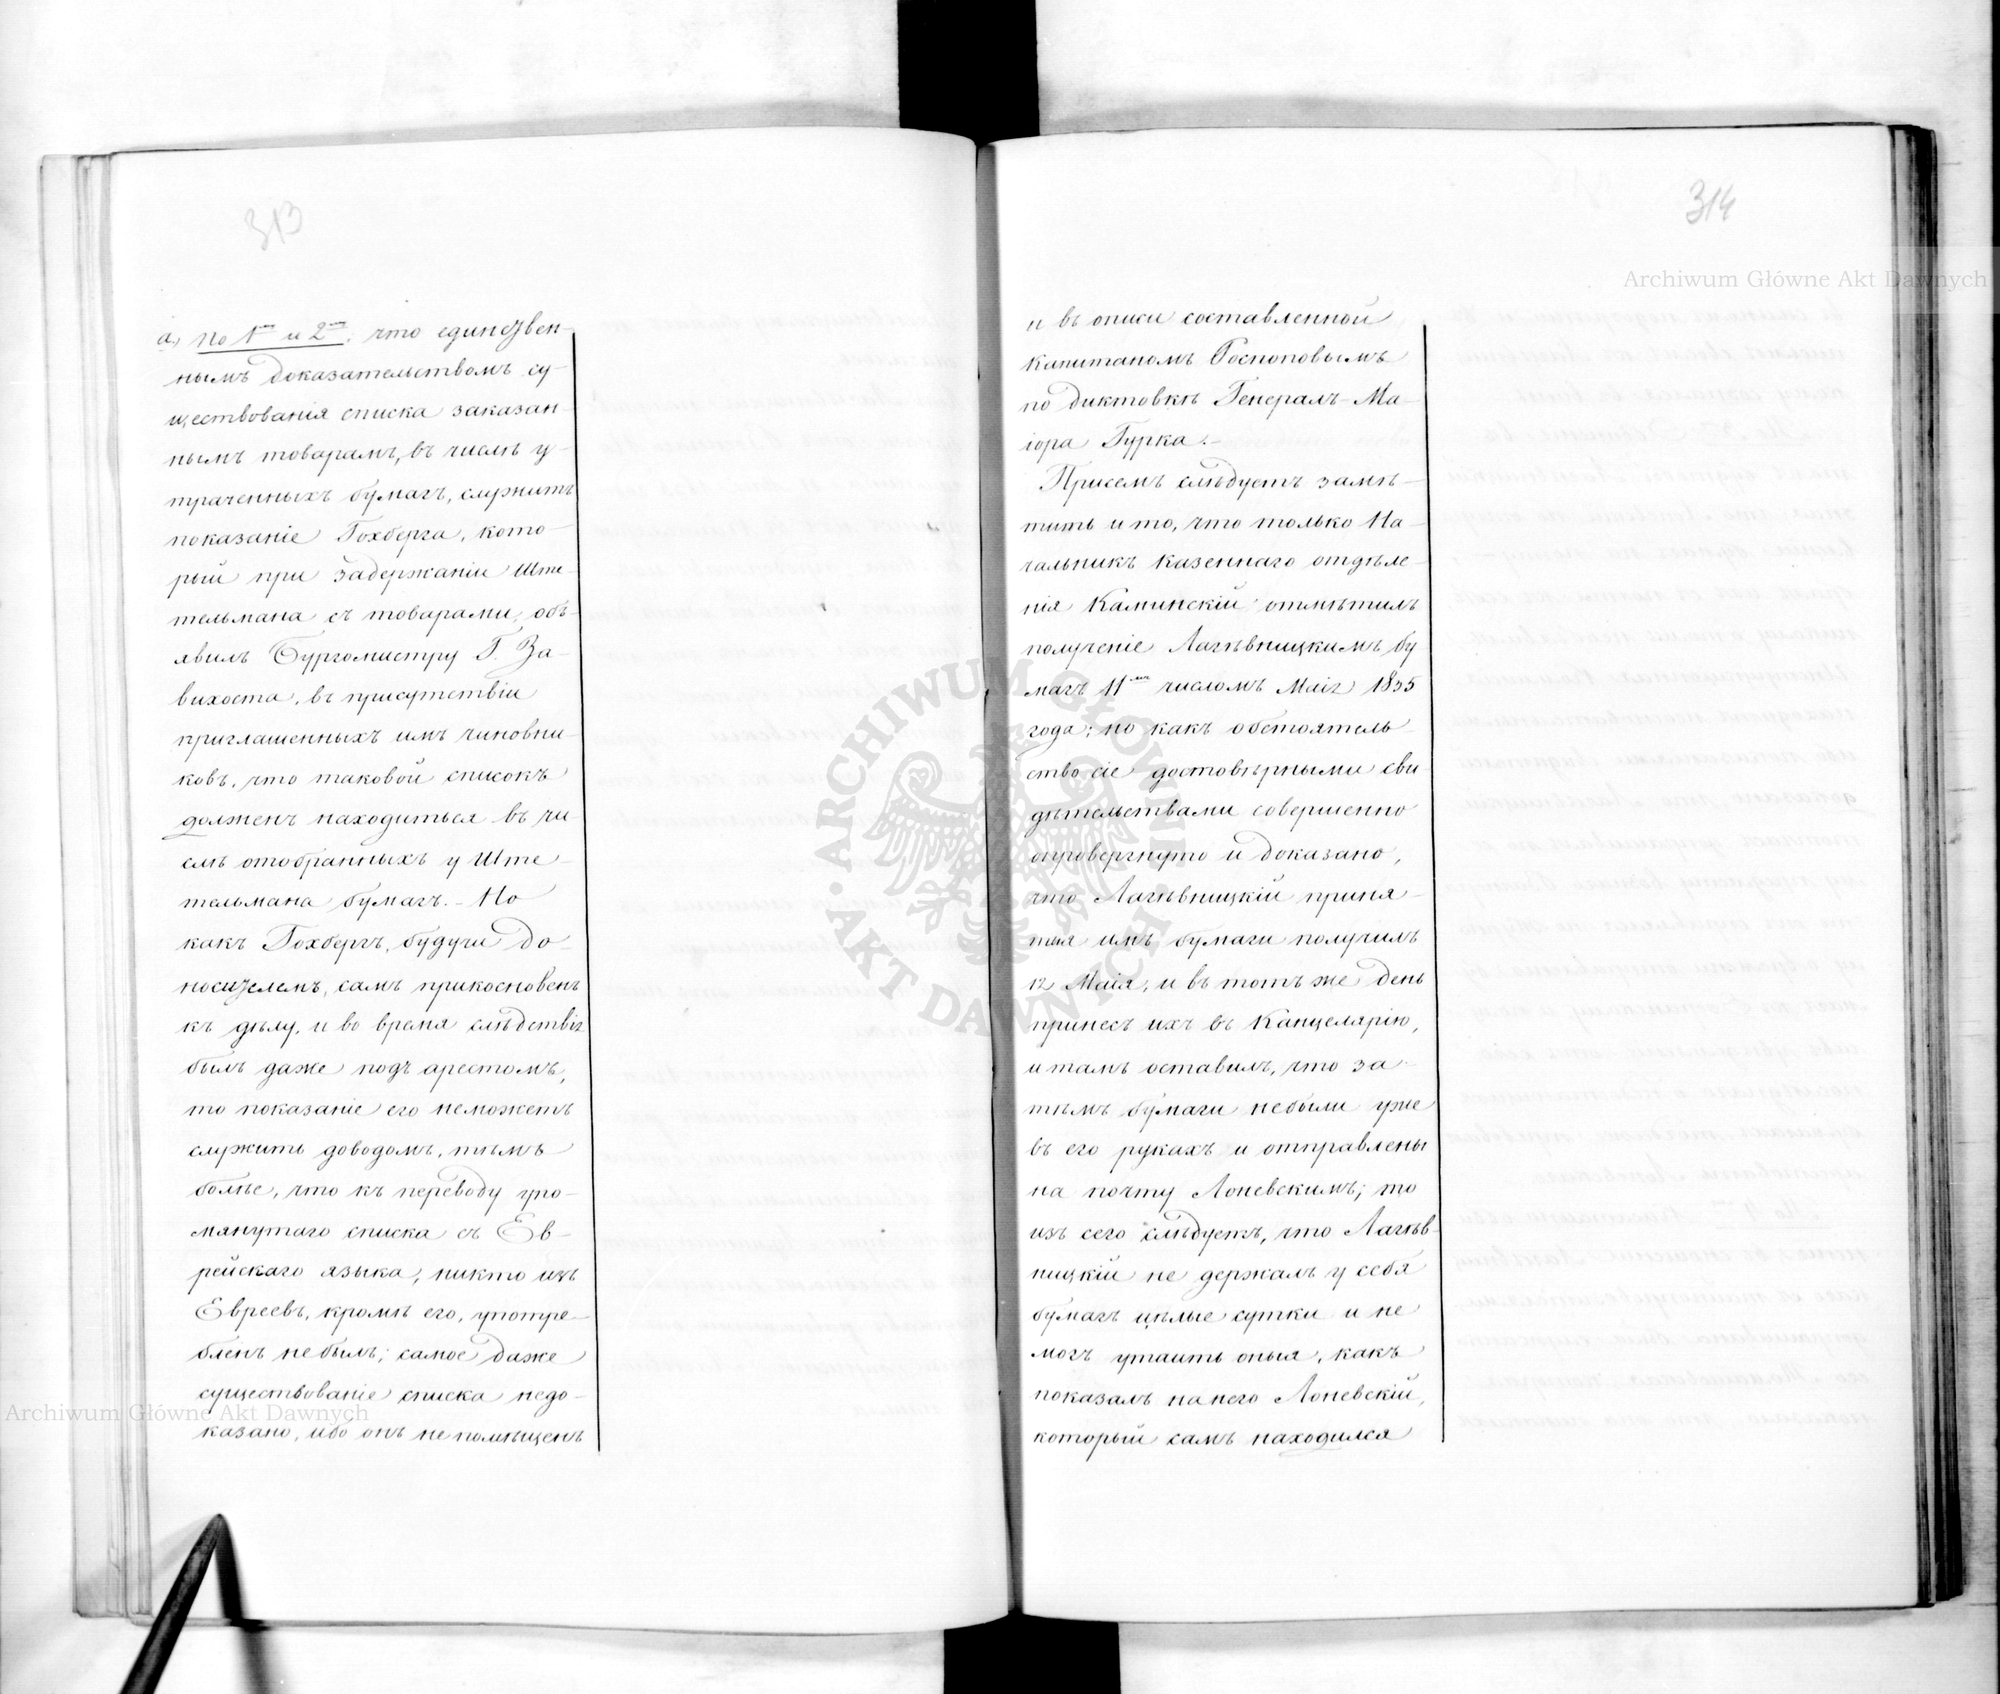 313
а, по 1му и 2му: что единствен-
нымъ доказательствомъ су-
ществованія списка заказан-
нымъ товарамъ, въ числѣ у-
траченныхъ бумагъ, служитъ
показаніе Гохберга, кото-
рый при задержаніи Ште-
тельмана съ товарами, объ-
явилъ Бургомистру Г. За-
вихоста, въ присутствіи
приглашенныхъ имъ чиновни-
ковъ, что таковой списокъ
долженъ находиться въ чи-
слѣ отобранныхъ у Ште-
тельмана бумагъ. - Но
какъ Гохбергъ, будучи до-
носителемъ, самъ прикосновенъ
къ дѣлу, и во время слѣдствія
былъ даже подъ арестомъ,
то показаніе его неможетъ
служить доводомъ, тѣмъ
болѣе, что къ переводу упо-
мянутаго списка съ Ев-
рейскаго языка, никто изъ
Евреевъ, кромѣ его, употре-
бленъ небылъ; самое даже
существованіе списка недо-
казано, ибо онъ не помѣщенъ
314
и въ описи составленной
Капитаномъ Госпоповымъ
по диктовкѣ Генералъ-Ма-
іора Гурка. -
Присемъ слѣдуетъ замѣ-
тить и то, что только На-
чальникъ Казеннаго отдѣле-
нія Каминскій отмѣтилъ
полученіе Лагѣвницкимъ бу-
магъ 11мъ числомъ Маія 1835
года; но какъ обстоятель-
ство сіе достовѣрными сви-
дѣтельствами совершенно
опровергнуто и доказано,
что Лагѣвницкій приня-
тыя имъ бумаги получилъ
12 Маія, и въ тотъ же день
принесъ ихъ въ Канцелярію,
и тамъ оставилъ, что за-
тѣмъ бумаги небыли уже
въ его рукахъ и отправлены
на почту Лоневскимъ; то
изъ сего слѣдуетъ, что Лагѣв-
ницкій не держалъ у себя
бумагъ цѣлые сутки и не
могъ утаить оныя, какъ
показалъ на него Лоневскій,
который самъ находился
Archiwum Główne Akt Dawnych
Archiwum Główne Akt Dawnych
ARCHIWUM GŁÓWNE · AKT DAWNYCH ·